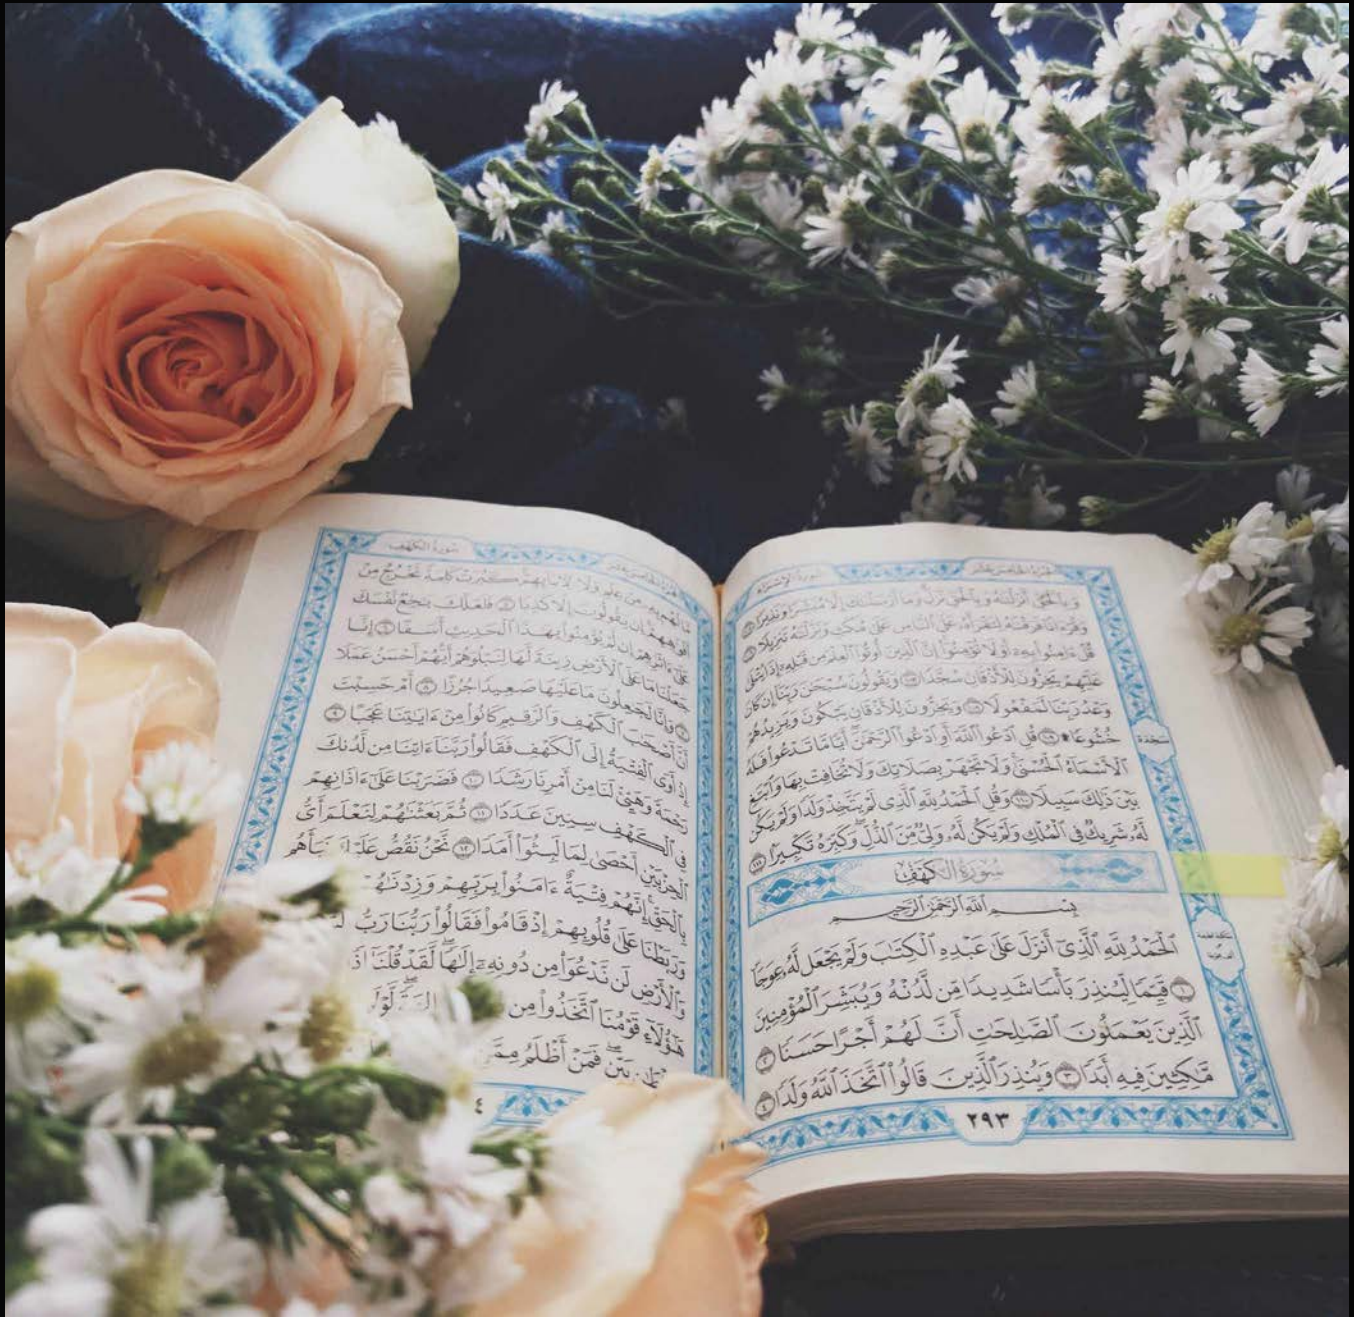 الجزء الخامس عشر
سورة الإسراء
وَبِٱلْحَقِّ أَنزَلْنَٰهُ وَبِٱلْحَقِّ نَزَلَ وَمَآ أَرْسَلْنَٰكَ إِلَّا مُبَشِّرًا وَنَذِيرًا ١٠٥
وَقُرْءَانًا فَرَقْنَٰهُ لِتَقْرَأَهُۥ عَلَى ٱلنَّاسِ عَلَىٰ مُكْثٍ وَنَزَّلْنَٰهُ تَنزِيلًا ١٠٦
قُلْ ءَامِنُوا۟ بِهِۦٓ أَوْ لَا تُؤْمِنُوٓا۟ إِنَّ ٱلَّذِينَ أُوتُوا۟ ٱلْعِلْمَ مِن قَبْلِهِۦٓ إِذَا يُتْلَىٰ
عَلَيْهِمْ يَخِرُّونَ لِلْأَذْقَانِ سُجَّدًا ١٠٧ وَيَقُولُونَ سُبْحَٰنَ رَبِّنَآ إِن كَانَ
وَعْدُ رَبِّنَا لَمَفْعُولًا ١٠٨ وَيَخِرُّونَ لِلْأَذْقَانِ يَبْكُونَ وَيَزِيدُهُمْ
خُشُوعًا ۩ ١٠٩ قُلِ ٱدْعُوا۟ ٱللَّهَ أَوِ ٱدْعُوا۟ ٱلرَّحْمَٰنَ أَيًّا مَّا تَدْعُوا۟ فَلَهُ
سجدة
ٱلْأَسْمَآءُ ٱلْحُسْنَىٰ وَلَا تَجْهَرْ بِصَلَاتِكَ وَلَا تُخَافِتْ بِهَا وَٱبْتَغِ
بَيْنَ ذَٰلِكَ سَبِيلًا ١١٠ وَقُلِ ٱلْحَمْدُ لِلَّهِ ٱلَّذِى لَمْ يَتَّخِذْ وَلَدًا وَلَمْ يَكُن
لَّهُۥ شَرِيكٌ فِى ٱلْمُلْكِ وَلَمْ يَكُن لَّهُۥ وَلِىٌّ مِّنَ ٱلذُّلِّ وَكَبِّرْهُ تَكْبِيرًۢا ١١١
سُورَةُ الكَهْفِ
بِسْمِ ٱللَّهِ ٱلرَّحْمَٰنِ ٱلرَّحِيمِ
ٱلْحَمْدُ لِلَّهِ ٱلَّذِىٓ أَنزَلَ عَلَىٰ عَبْدِهِ ٱلْكِتَٰبَ وَلَمْ يَجْعَل لَّهُۥ عِوَجَا
١ قَيِّمًا لِّيُنذِرَ بَأْسًا شَدِيدًا مِّن لَّدُنْهُ وَيُبَشِّرَ ٱلْمُؤْمِنِينَ
ٱلَّذِينَ يَعْمَلُونَ ٱلصَّٰلِحَٰتِ أَنَّ لَهُمْ أَجْرًا حَسَنًا ٢
مَّٰكِثِينَ فِيهِ أَبَدًا ٣ وَيُنذِرَ ٱلَّذِينَ قَالُوا۟ ٱتَّخَذَ ٱللَّهُ وَلَدًا ٤
٢٩٣
الجزء الخامس عشر
سورة الكهف
مَّا لَهُم بِهِۦ مِنْ عِلْمٍ وَلَا لِءَابَآئِهِمْ كَبُرَتْ كَلِمَةً تَخْرُجُ مِنْ
أَفْوَٰهِهِمْ إِن يَقُولُونَ إِلَّا كَذِبًا ٥ فَلَعَلَّكَ بَٰخِعٌ نَّفْسَكَ
عَلَىٰٓ ءَاثَٰرِهِمْ إِن لَّمْ يُؤْمِنُوا۟ بِهَٰذَا ٱلْحَدِيثِ أَسَفًا ٦ إِنَّا
جَعَلْنَا مَا عَلَى ٱلْأَرْضِ زِينَةً لَّهَا لِنَبْلُوَهُمْ أَيُّهُمْ أَحْسَنُ عَمَلًا
٧ وَإِنَّا لَجَٰعِلُونَ مَا عَلَيْهَا صَعِيدًا جُرُزًا ٨ أَمْ حَسِبْتَ
أَنَّ أَصْحَٰبَ ٱلْكَهْفِ وَٱلرَّقِيمِ كَانُوا۟ مِنْ ءَايَٰتِنَا عَجَبًا ٩
إِذْ أَوَى ٱلْفِتْيَةُ إِلَى ٱلْكَهْفِ فَقَالُوا۟ رَبَّنَآ ءَاتِنَا مِن لَّدُنكَ
رَحْمَةً وَهَيِّئْ لَنَا مِنْ أَمْرِنَا رَشَدًا ١٠ فَضَرَبْنَا عَلَىٰٓ ءَاذَانِهِمْ
فِى ٱلْكَهْفِ سِنِينَ عَدَدًا ١١ ثُمَّ بَعَثْنَٰهُمْ لِنَعْلَمَ أَىُّ
ٱلْحِزْبَيْنِ أَحْصَىٰ لِمَا لَبِثُوٓا۟ أَمَدًا ١٢ نَّحْنُ نَقُصُّ عَلَيْكَ نَبَأَهُم
بِٱلْحَقِّ إِنَّهُمْ فِتْيَةٌ ءَامَنُوا۟ بِرَبِّهِمْ وَزِدْنَٰهُمْ
وَرَبَطْنَا عَلَىٰ قُلُوبِهِمْ إِذْ قَامُوا۟ فَقَالُوا۟ رَبُّنَا رَبُّ
وَٱلْأَرْضِ لَن نَّدْعُوَا۟ مِن دُونِهِۦٓ إِلَٰهًا لَّقَدْ قُلْنَآ إِذًا
هَٰٓؤُلَآءِ قَوْمُنَا ٱتَّخَذُوا۟ مِن
بَيِّنٍ فَمَنْ أَظْلَمُ مِمَّنِ